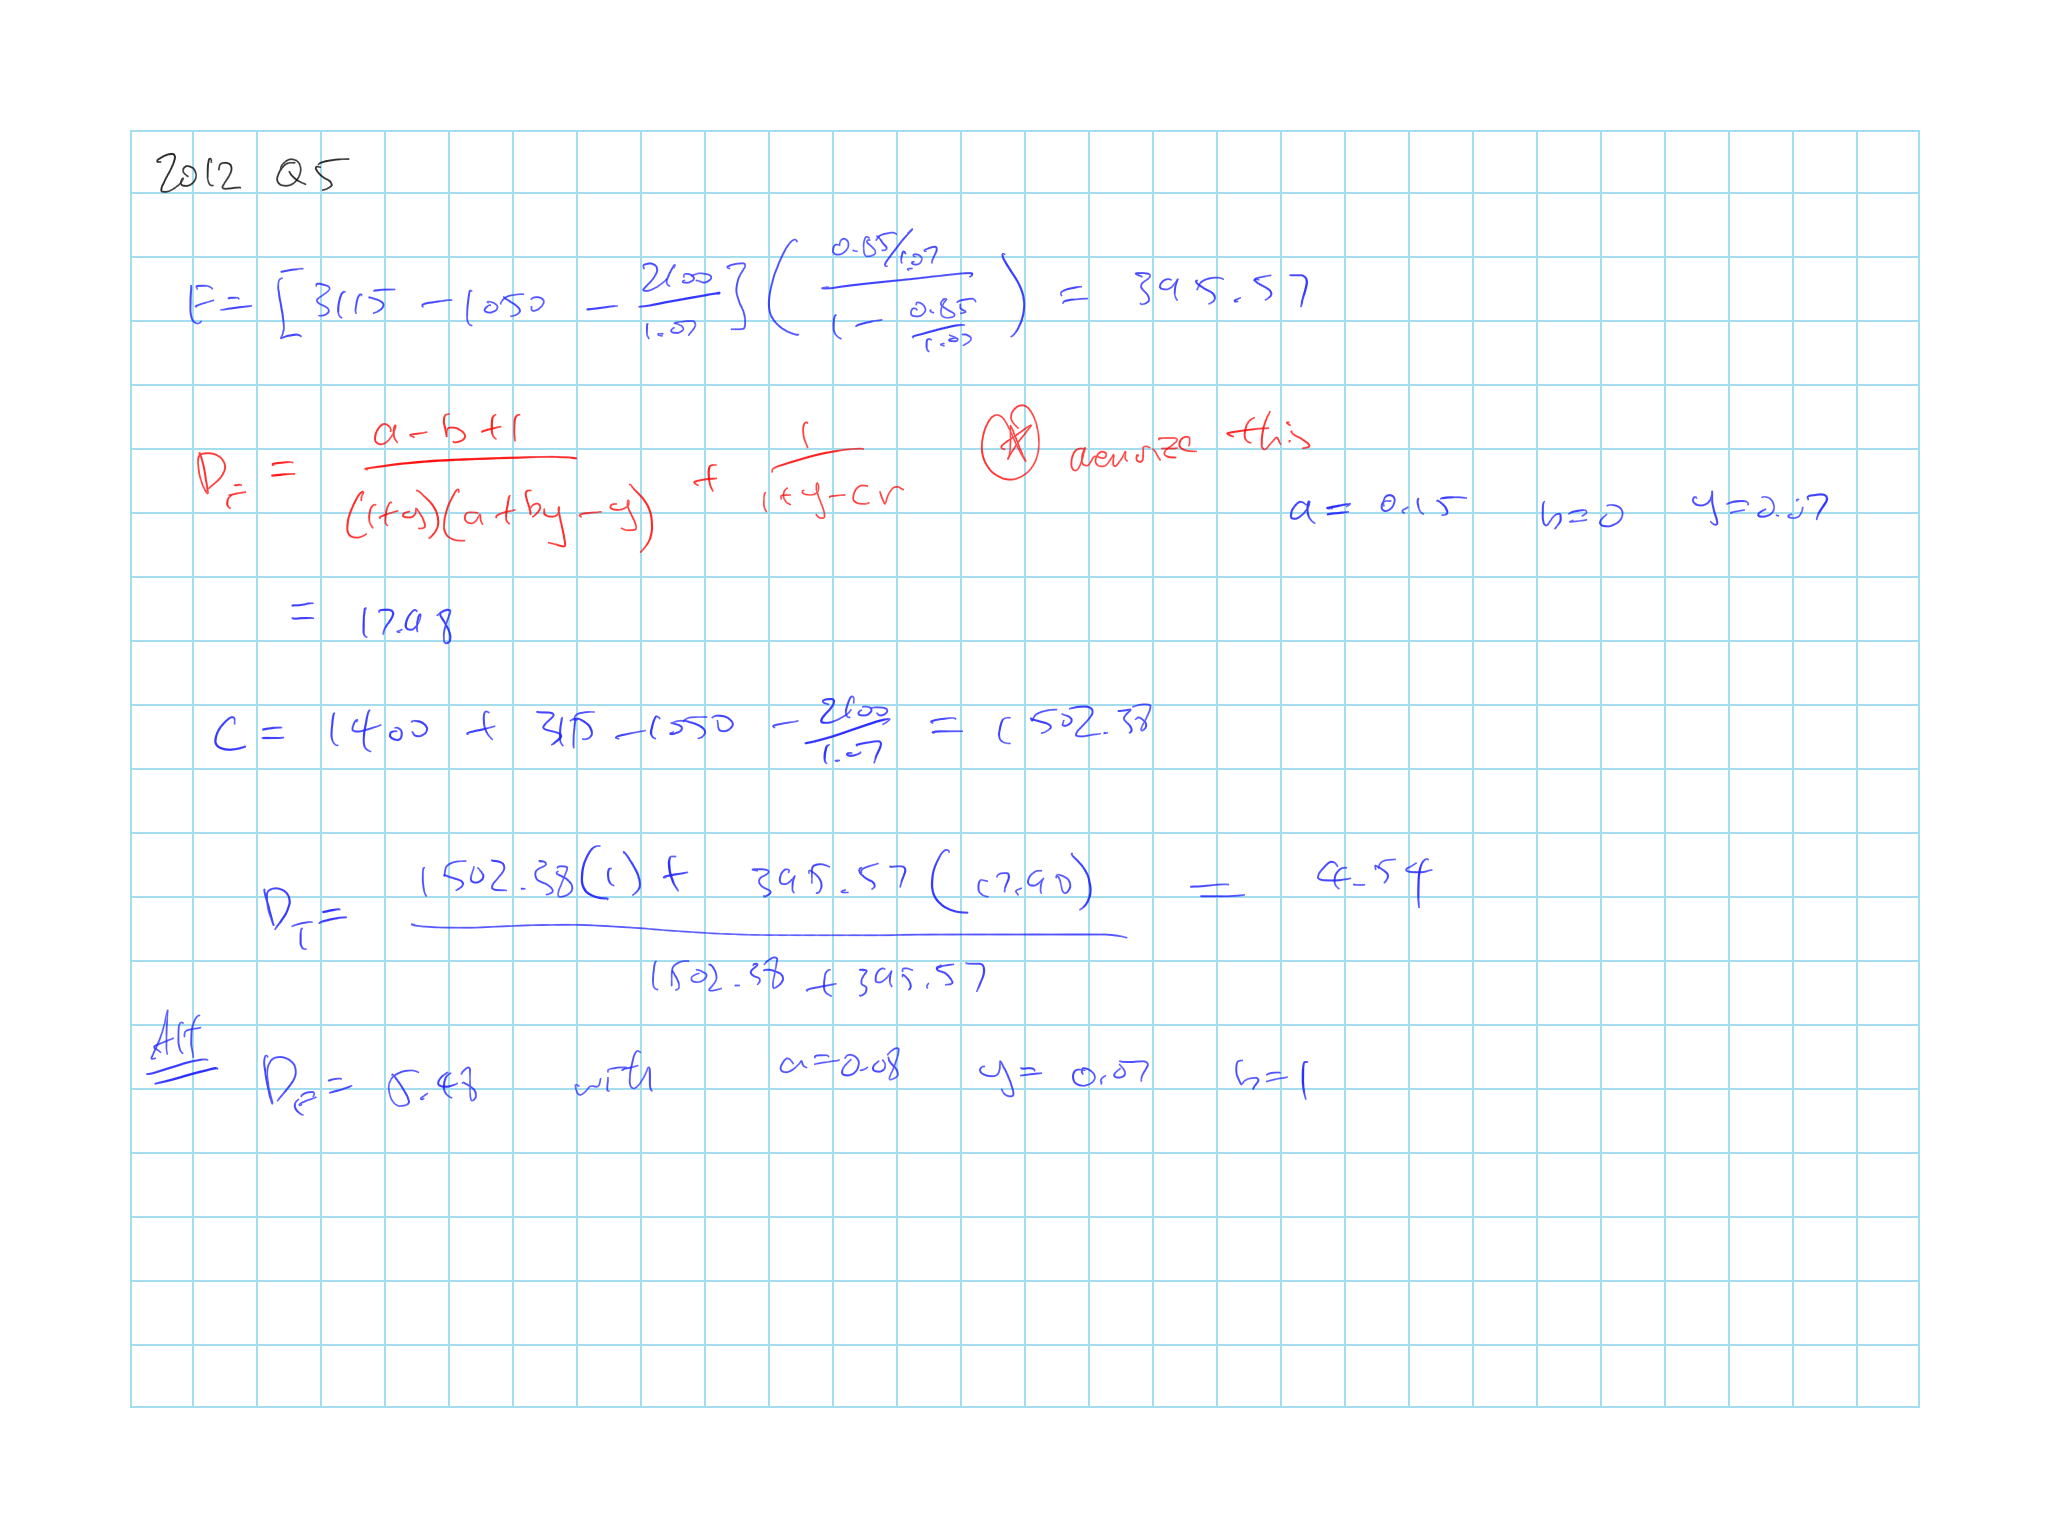 2012 Q5
F = [3115 - 1050 - 2100/1.07] ( (0.85/1.07) / (1 - 0.85/1.07) ) = 395.57
D_F = (a-b+1) / ((1+y)(a+by-y)) + 1/(1+y-cr) * this
a = 0.15 b=0 y=0.07
= 17.98
C = 1400 + 3115 - 1050 - 2100/1.07 = 1502.38
D_T = (1502.38(1) + 395.57(17.90)) / (1502.38 + 395.57) = 4.54
Alt D_F = 5.48 with a=0.08 y= 0.07 b=1